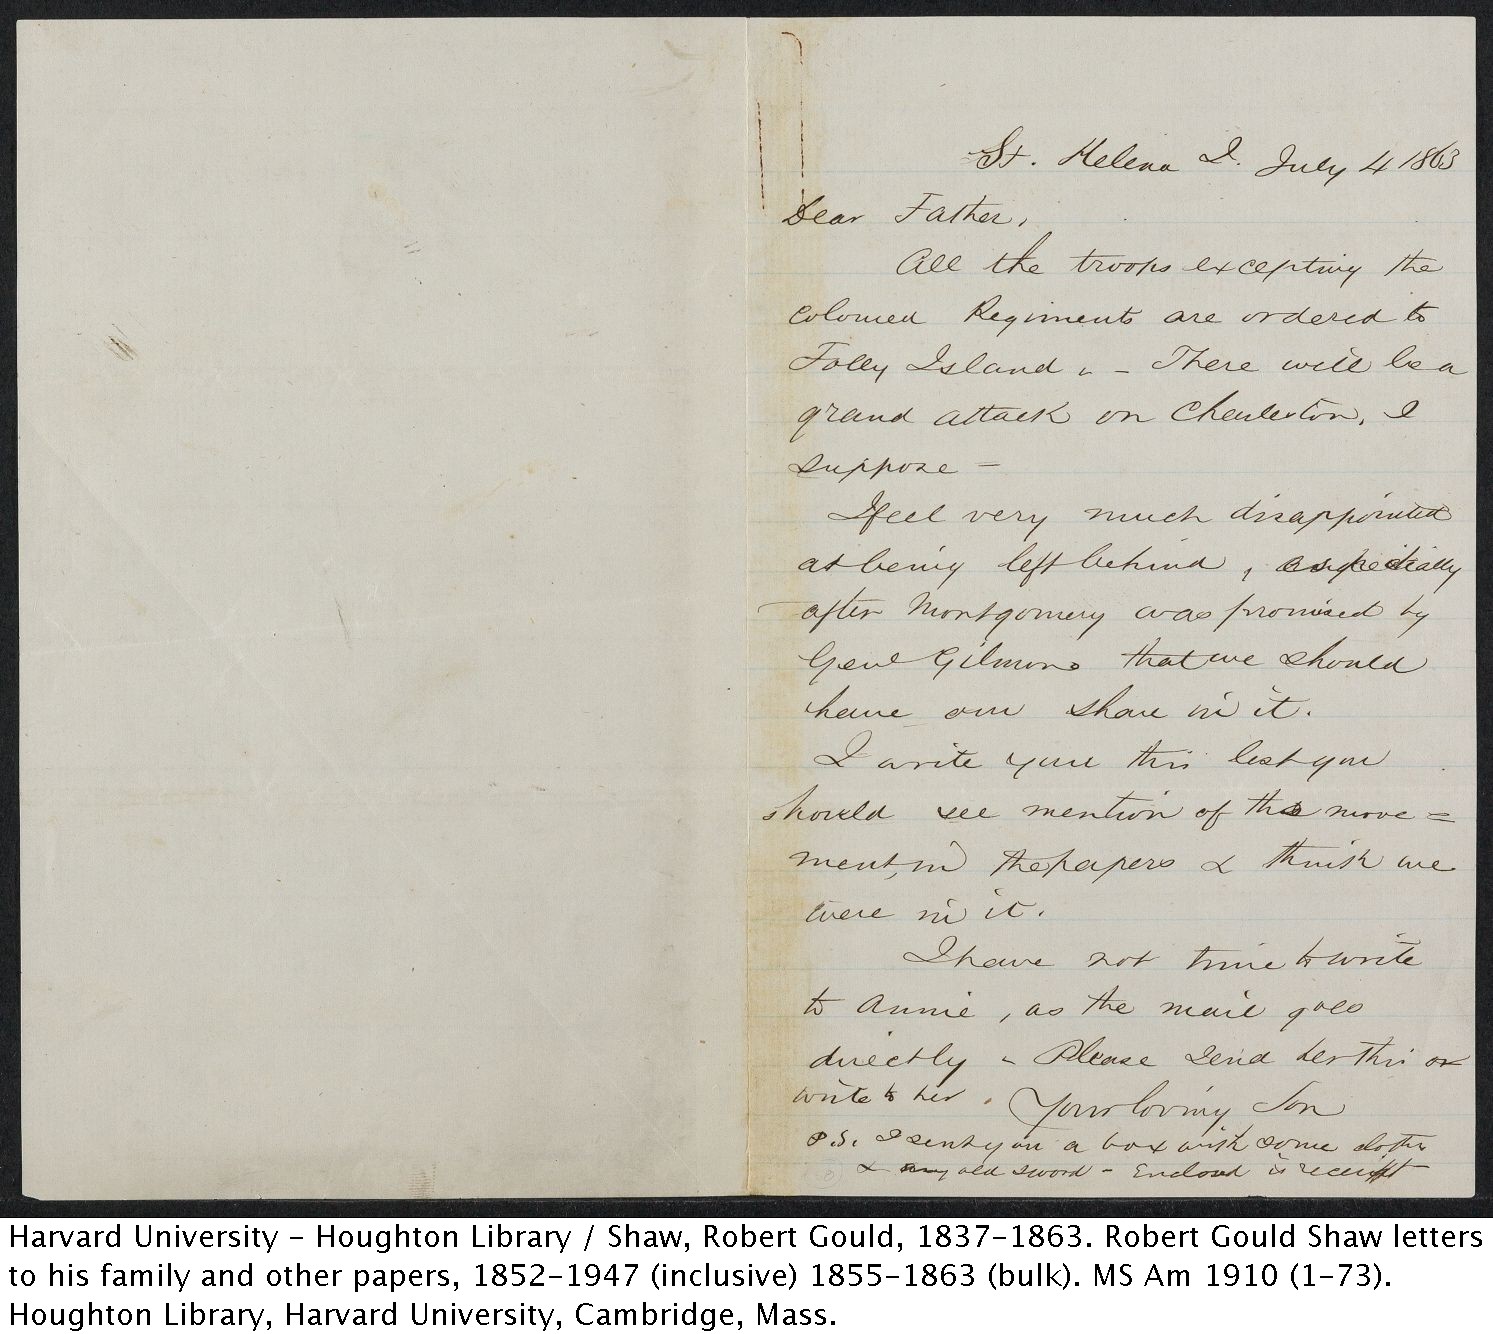 St. Helena I. July 4 1863
Dear Father,
All the troops excepting the
colored Regiments are ordered to
Folly Island. – There will be a
grand attack on Charleston, I
suppose –
I feel very much disappointed
at being left behind, especially
after Montgomery was promised by
Genl Gilmore that we should
have our share in it.
I write you this lest you
should see mention of the move=
ment, in the papers & think we
were in it.
I have not time to write
to Annie, as the mail goes
directly – Please send her this or
write to her. Your loving Son
P.S. I sent you a box with some clothes
& my old sword – Enclosed is receipt
Harvard University - Houghton Library / Shaw, Robert Gould, 1837-1863. Robert Gould Shaw letters
to his family and other papers, 1852-1947 (inclusive) 1855-1863 (bulk). MS Am 1910 (1-73).
Houghton Library, Harvard University, Cambridge, Mass.